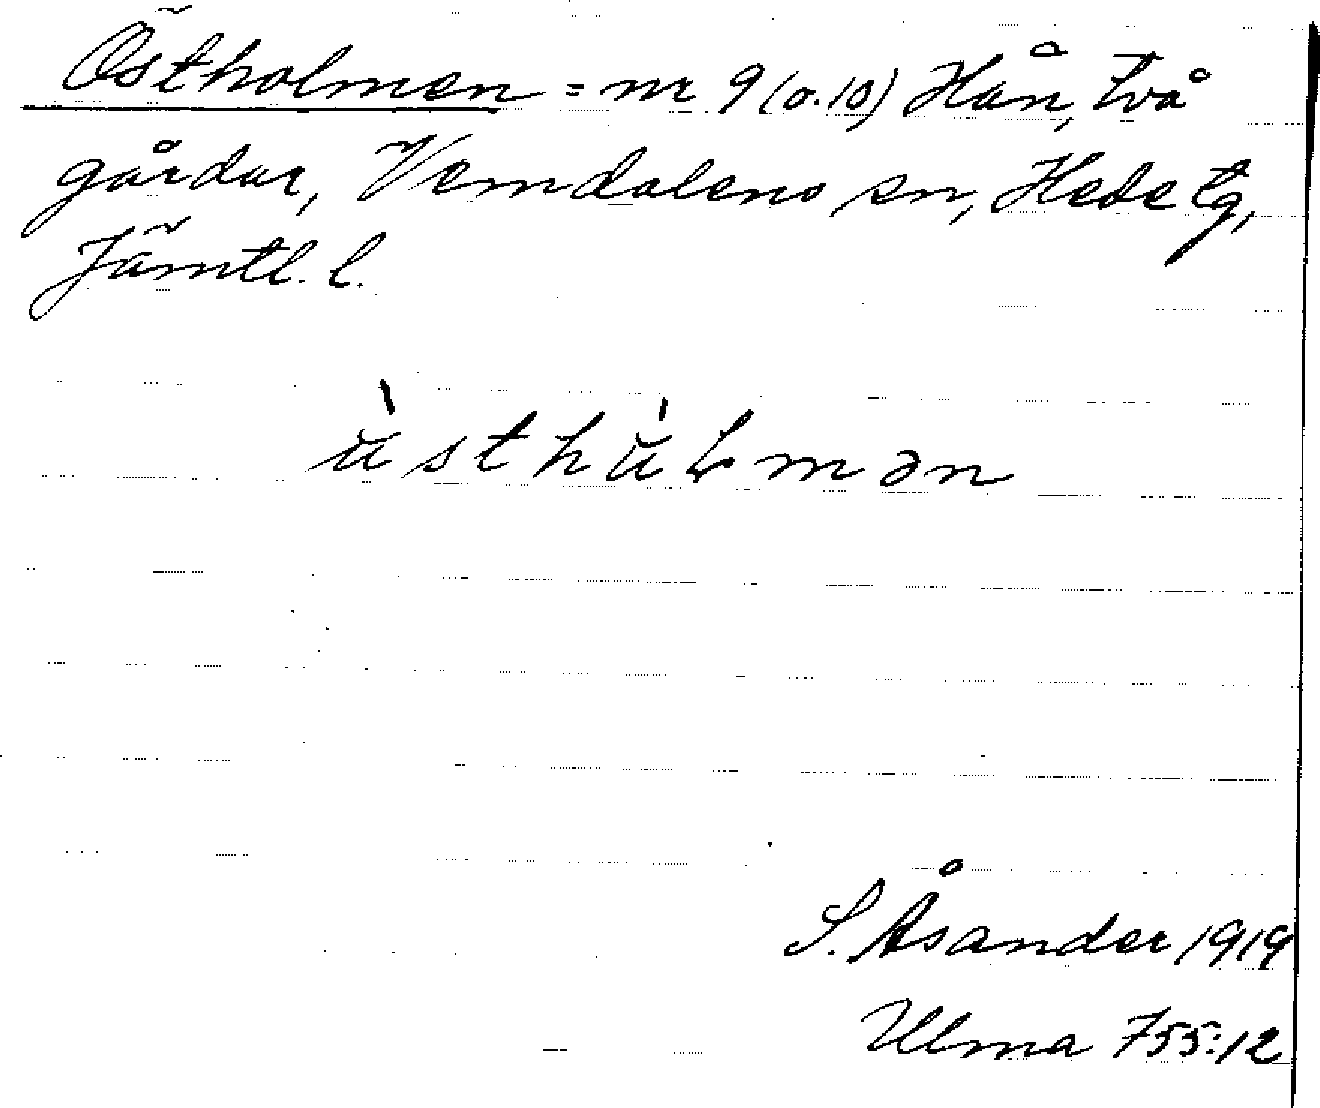 Östholmen = nr 9 (o. 10) Hån, två
gårdar, Vemdalens sn, Hede tg,
Jämtl. l.
ùsthùLmən
S. Åsander 1919
Ulma 755:12